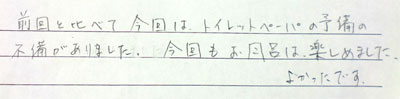 前回と比べて今回は、トイレットペーパの予備の
不備がありました。今回もお風呂は、楽しめました。
よかったです。